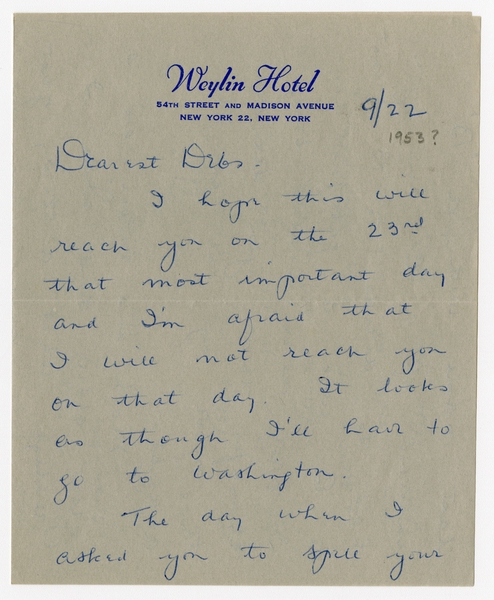 Weylin Hotel
54TH STREET AND MADISON AVENUE
NEW YORK 22, NEW YORK
9/22
1953?
Dearest Debs.
I hope this will
reach you on the 23rd
that most important day
and I'm afraid that
I will not reach you
on that day. It looks
as though I'll have to
go to Washington.
The day when I
asked you to spell your